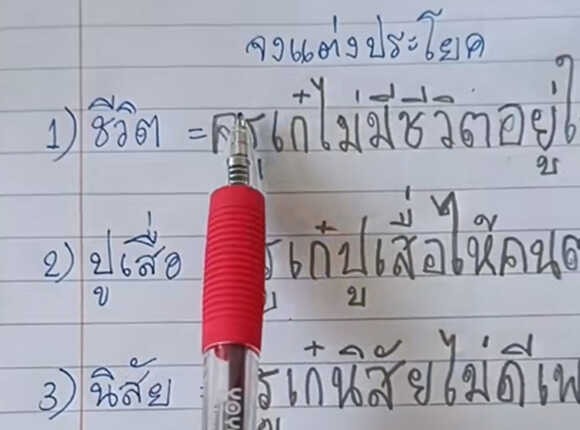 จงแต่งประโยค
1) ชีวิต = ครูเก๋ไม่มีชีวิตอยู่ใ
2) ปูเสื่อ รูเก๋ปูเสื่อให้คน
3) นิสัย รูเก๋นิสัยไม่ดีเพ